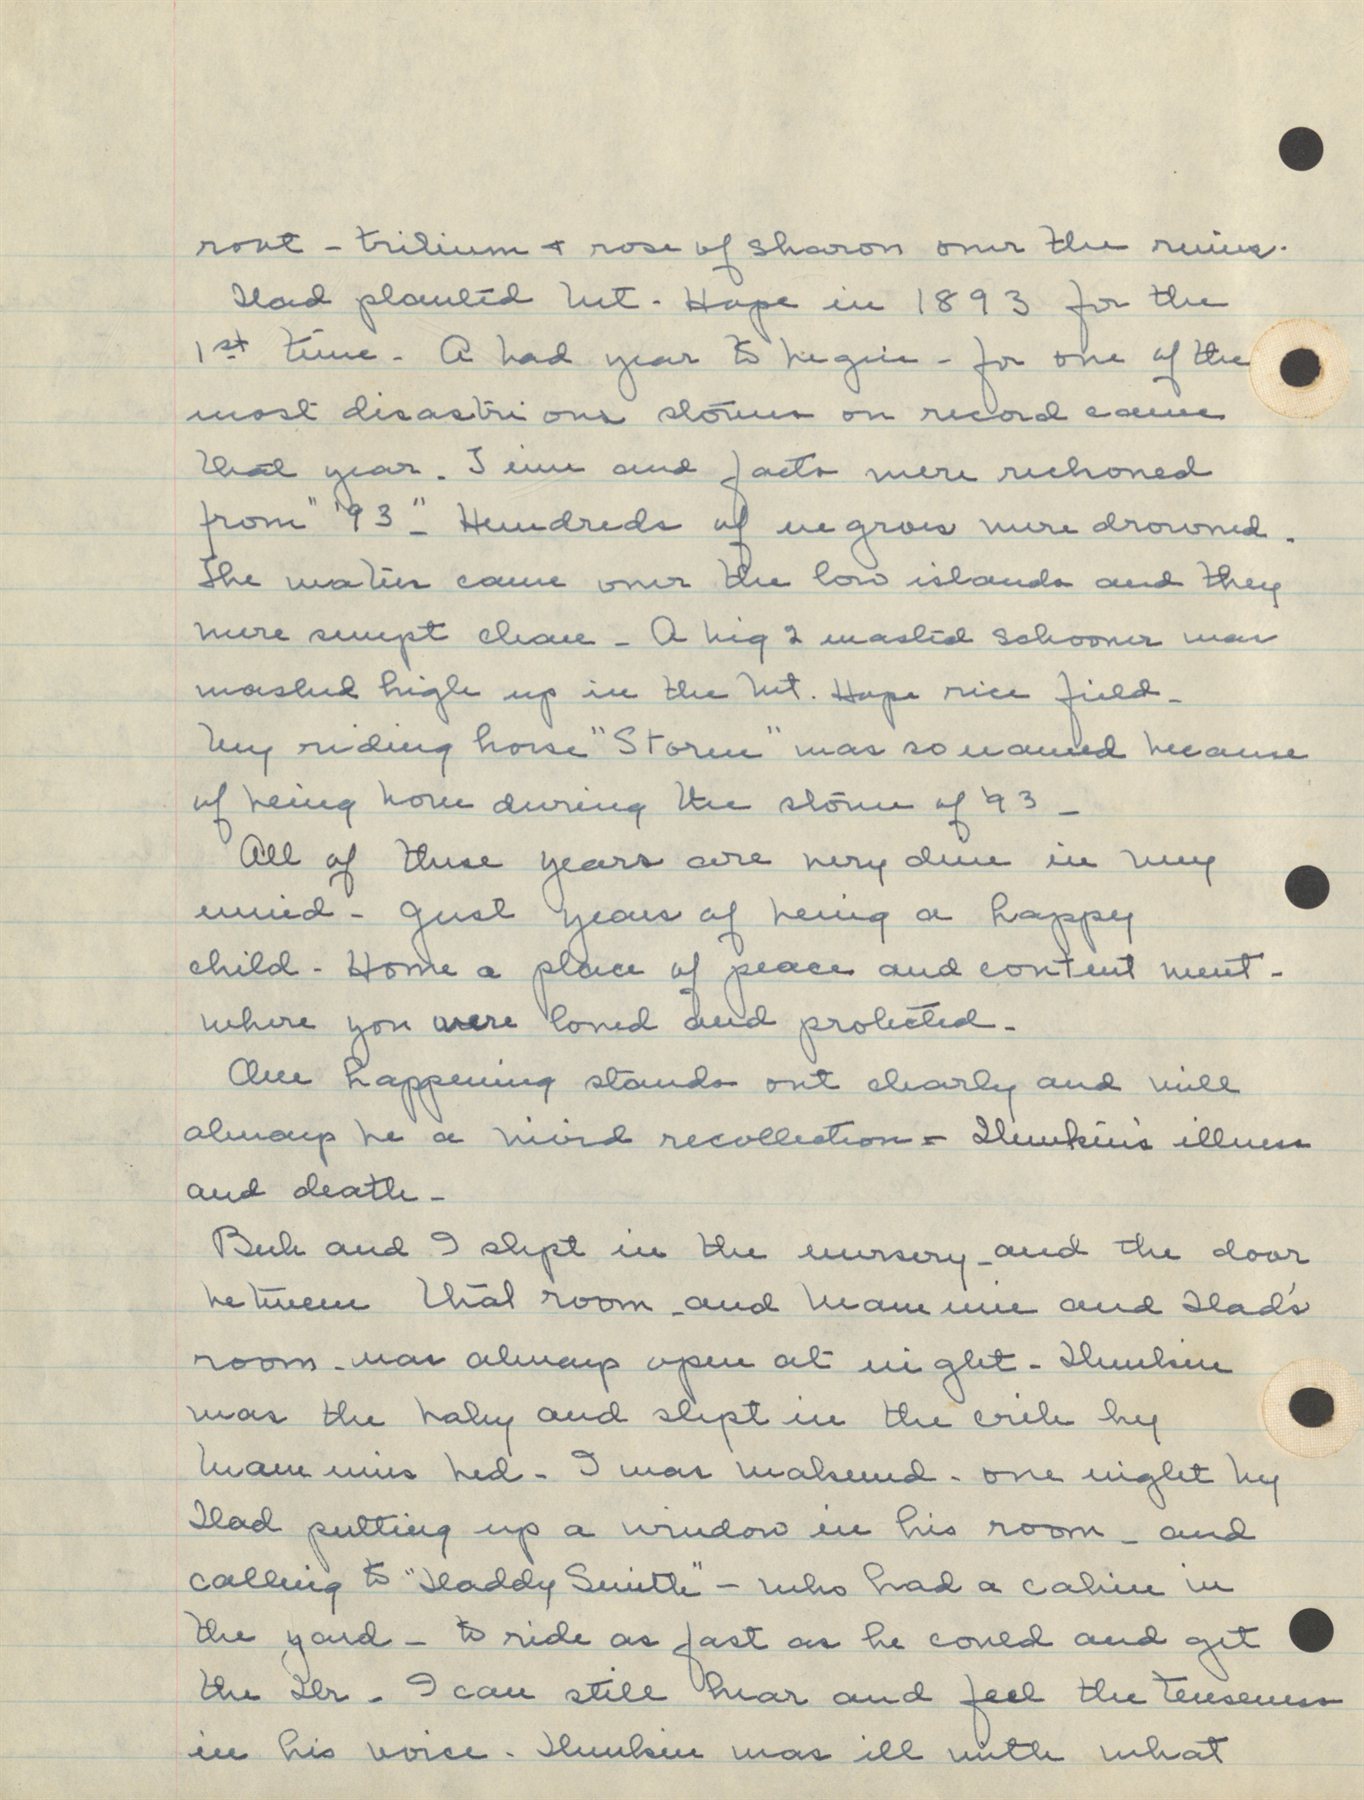 rout - trilium & rose of sharon over the ruins.
Dad planted Mt. Hope in 1893 for the
1st time - A bad year to begin - for one of the
most disastrious storms on record came
that year. Time and facts were reckoned
from "'93" - Hundreds of negroes were drowned.
The waters came over the low islands and they
were swept clean - A big 2 masted schooner was
washed high up in the Mt. Hope rice field -
My riding horse "Storm" was so named because
of being born during the storm of '93 -
All of these years are very dim in my
mind - Just years of being a happy
child - Home a place of peace and content ment -
where you were loved and protected -
One happening stands out clearly and will
always be a vivid recollection - Dunkin's illness
and death -
Bub and I slept in the nursery - and the door
between that room - and Mammie and Dad's
room - was always open at night - Dunkin
was the baby and slept in the crib by
Mammies bed - I was wakened - one night by
Dad putting up a window in his room - and
calling to "Daddy Smith" - who had a cabin in
the yard - to ride as fast as he could and get
the Dr - I can still hear and feel the tenseness
in his voice - Dunkin was ill with what